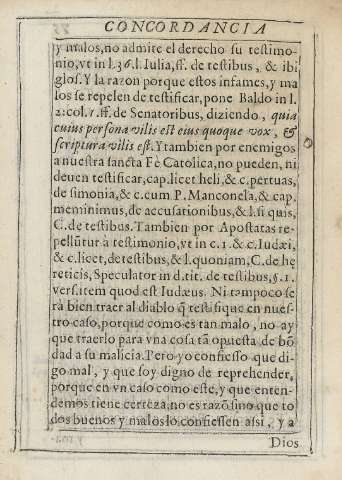 CONCORDANCIA
y malos, no admite el derecho su testimo-
nio, vt in l. 36. l. Iulia, ff. de testibus, & ibi
glos. Y la razon porque estos infames, y ma
los se repelen de testificar, pone Baldo in l.
2. col. 1. ff. de Senatoribus, diziendo, quia
cuius persona vilis est eius quoque vox, &
scriptura vilis est. Y tambien por enemigos
a nuestra sancta Fè Catolica, no pueden, ni
deuen testificar, cap. licet heli, & c. pertuas,
de simonia, & c. cum P. Manconela, & cap.
meminimus, de accusationibus, & l. si quis,
C. de testibus. Tambien por Apostatas re-
pellūtur à testimonio, vt in c. 1. & c. Iudæi,
& c. licet, de testibus, & l. quoniam, C. de hę
reticis, Speculator in d. tit. de testibus, §. 1.
vers. item quod est Iudæus. Ni tāpoco se
rà bien traer al diablo q̃ testifique en nues-
tro caso, porque como es tan malo, no ay
que traerlo para vna cosa tā opuesta de bō
dad a su malicia. Pero yo confiesso que di-
go mal, y que soy digno de reprehender,
porque en vn caso como este, y que enten-
demos tiene certeza, no es razō sino que to
dos buenos y malos lo confiessen assi, y a
Dios